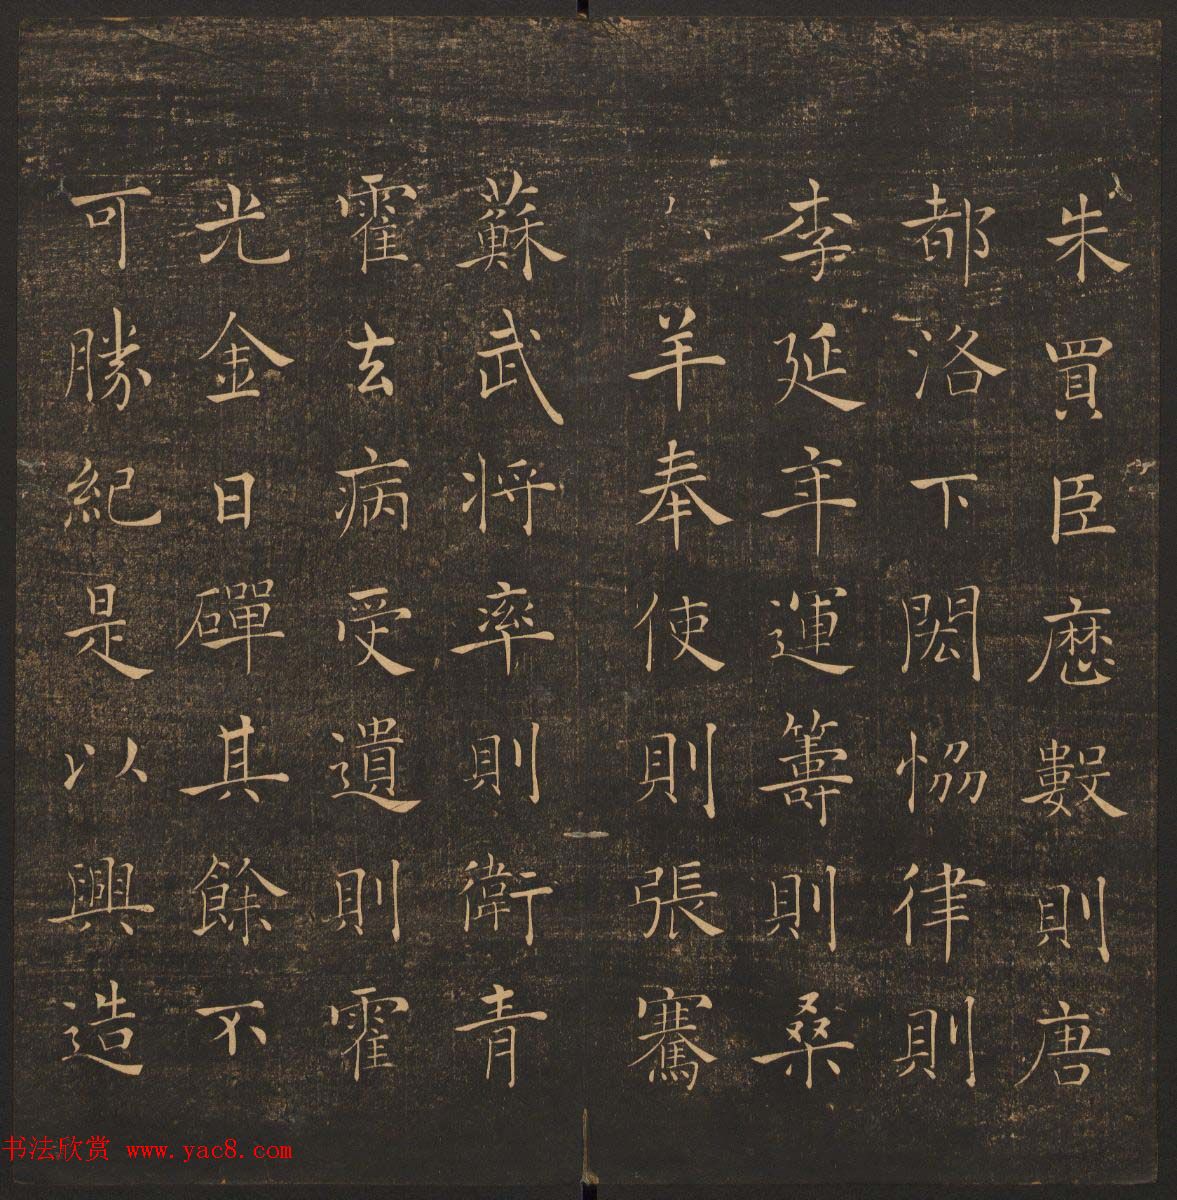 朱買臣歷數則唐
都洛下閎恊律則
李延年運籌則桑
羊奉使則張騫
蘇武將率則衛青
霍去病受遺則霍
光金日磾其餘不
可勝紀是以興造
书法欣赏 www.yac8.com